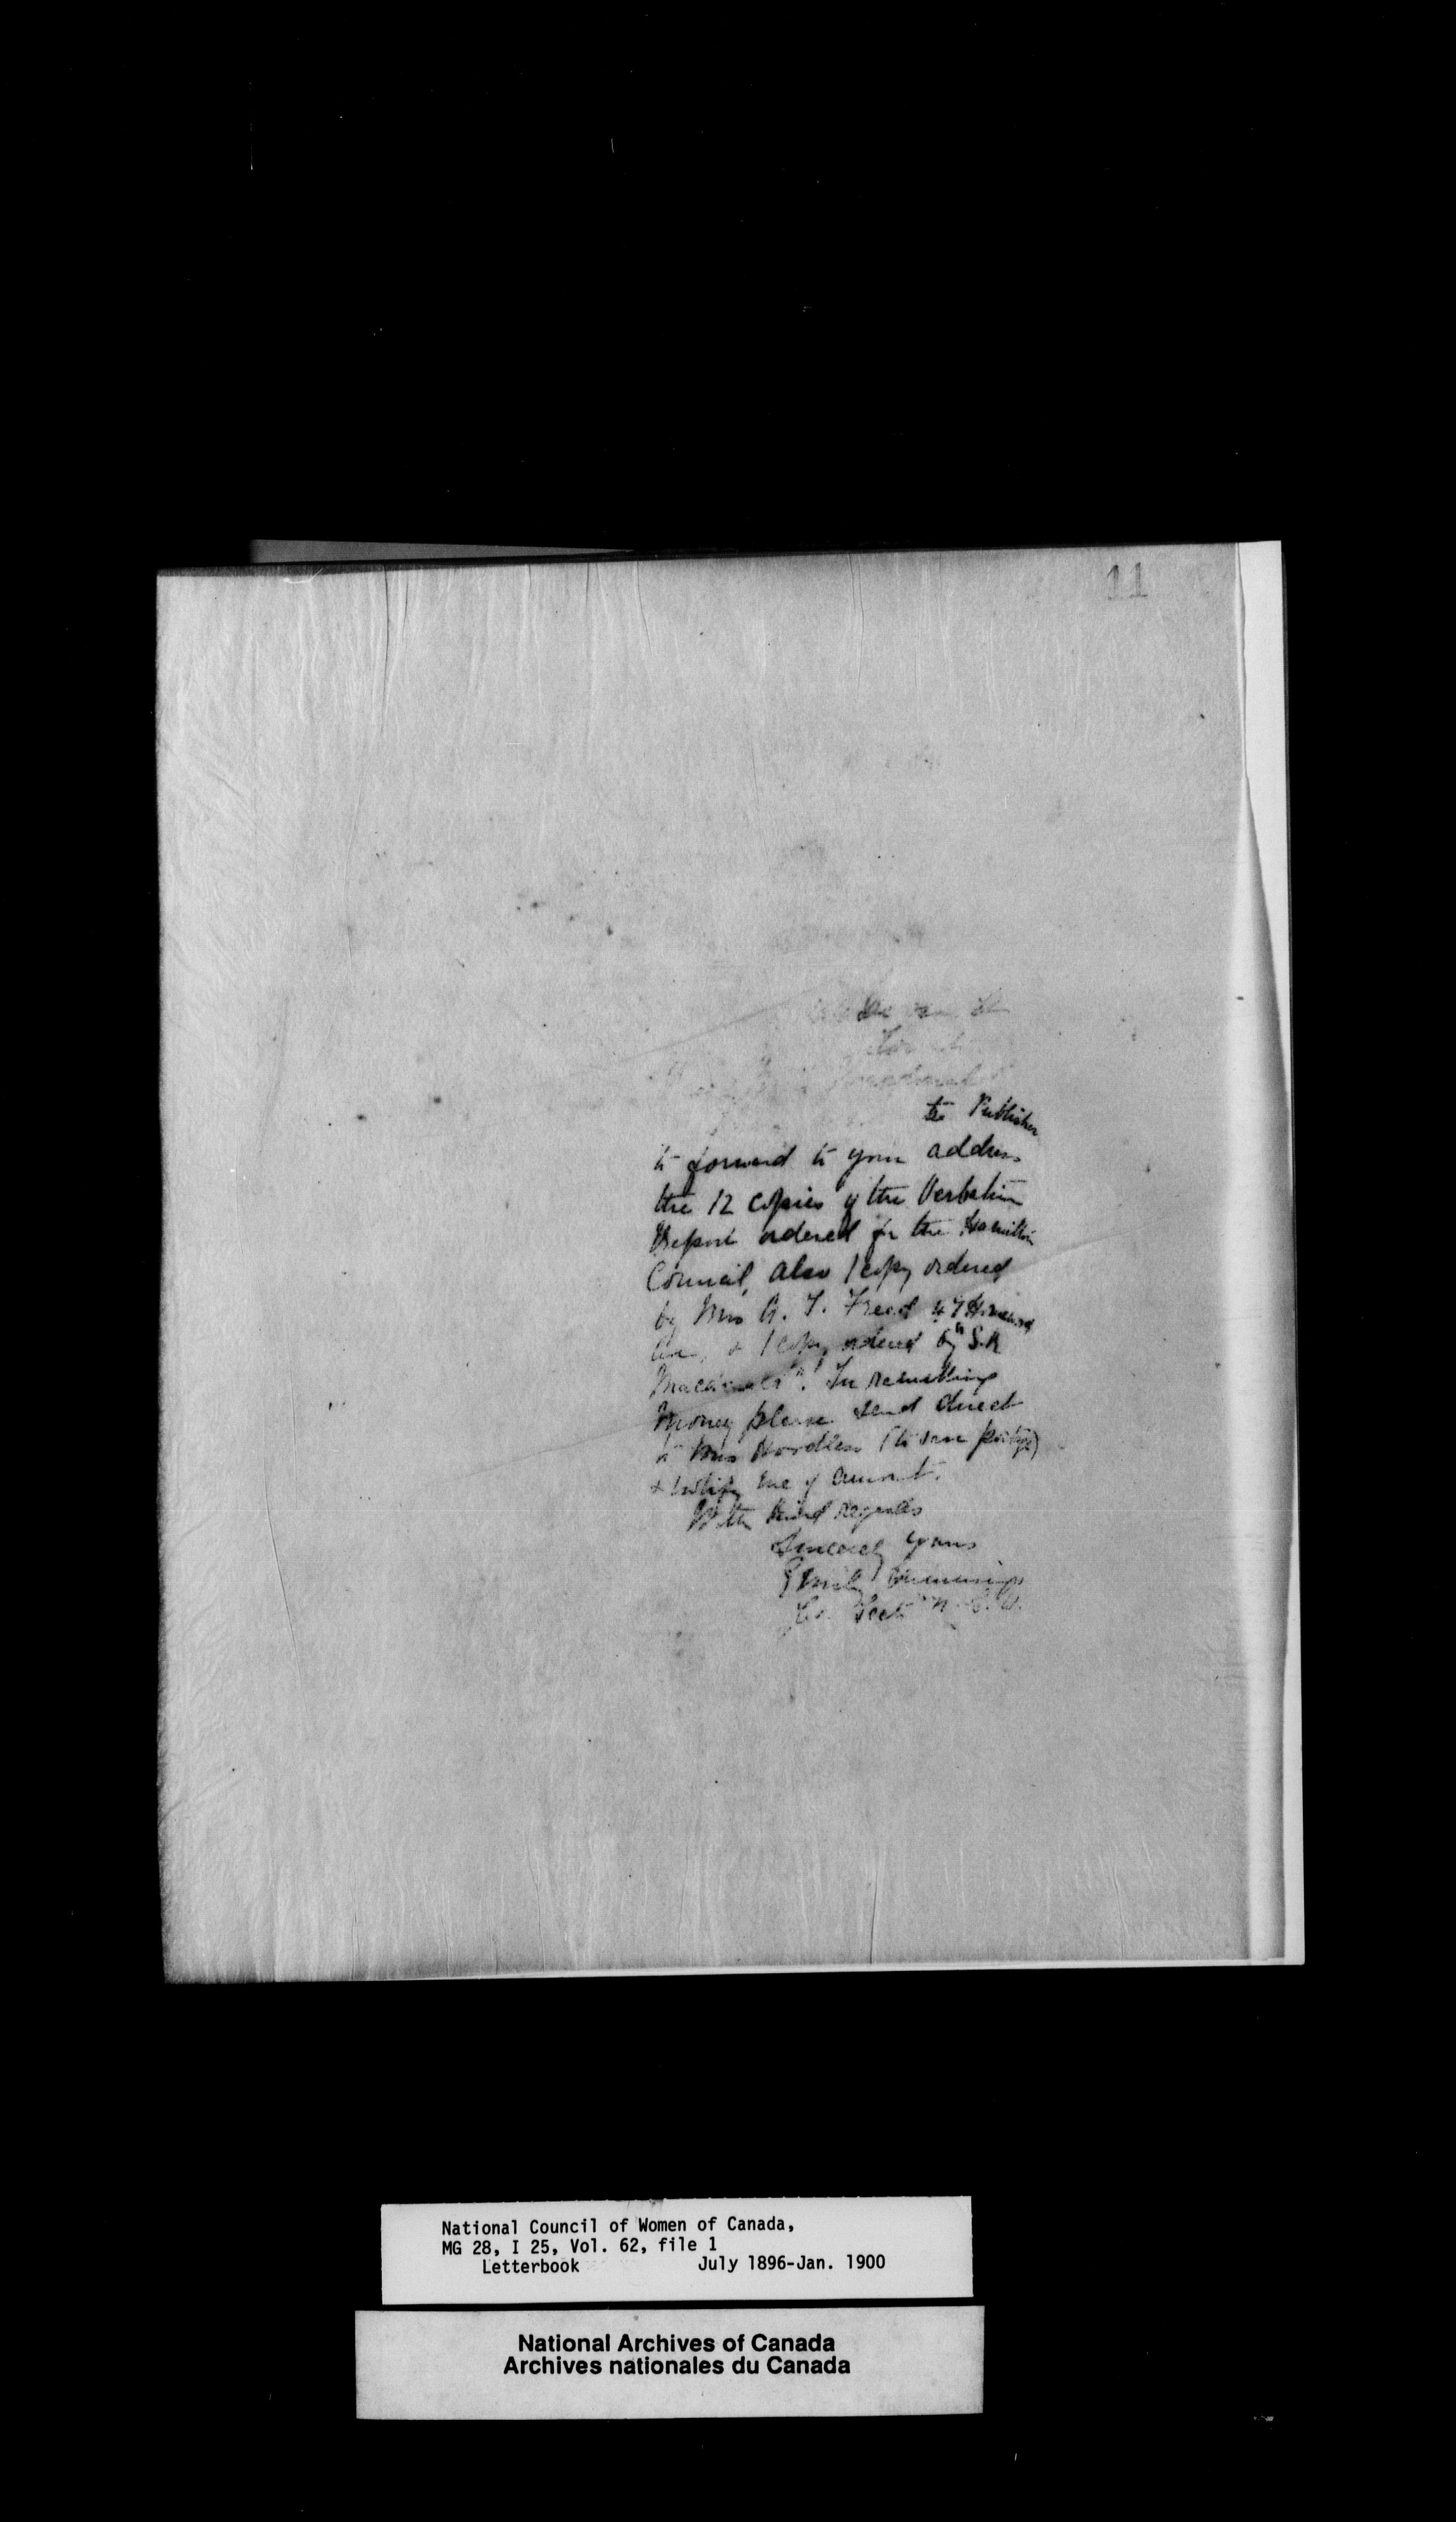 11
the Publisher
to forward to your address
the 12 copies of the Verbatim
Report ordered for the Hamilton
Council, also 1 copy ordered
by Mrs A. T. Freed 47
Ave, & 1 copy ordered by "S. R
In remitting
money please send direct
to Mrs Hoodless (to save postage)
& notify me of amount.
With kind regards
Sincerely yours
Emily Cummings
Cor. Sect N.C.W.
National Council of Women of Canada,
MG 28, I 25, Vol. 62, file 1
Letterbook July 1896-Jan. 1900
National Archives of Canada
Archives nationales du Canada